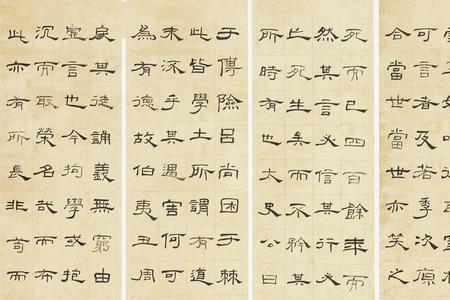 可言者及若季次原
合當世當世亦笑之
死而已四百餘年而
然其言必信其行必
亡死生矣而不矜其
所時有也太史公曰
于傅險呂尚困于棘
此皆學士所謂有道
末流乎其遇害何可
為有德故伯夷丑周
戾其徒誦義無窮由
虛言也今拘學或抱
沉而取榮名哉而布
此亦有所長非苟而